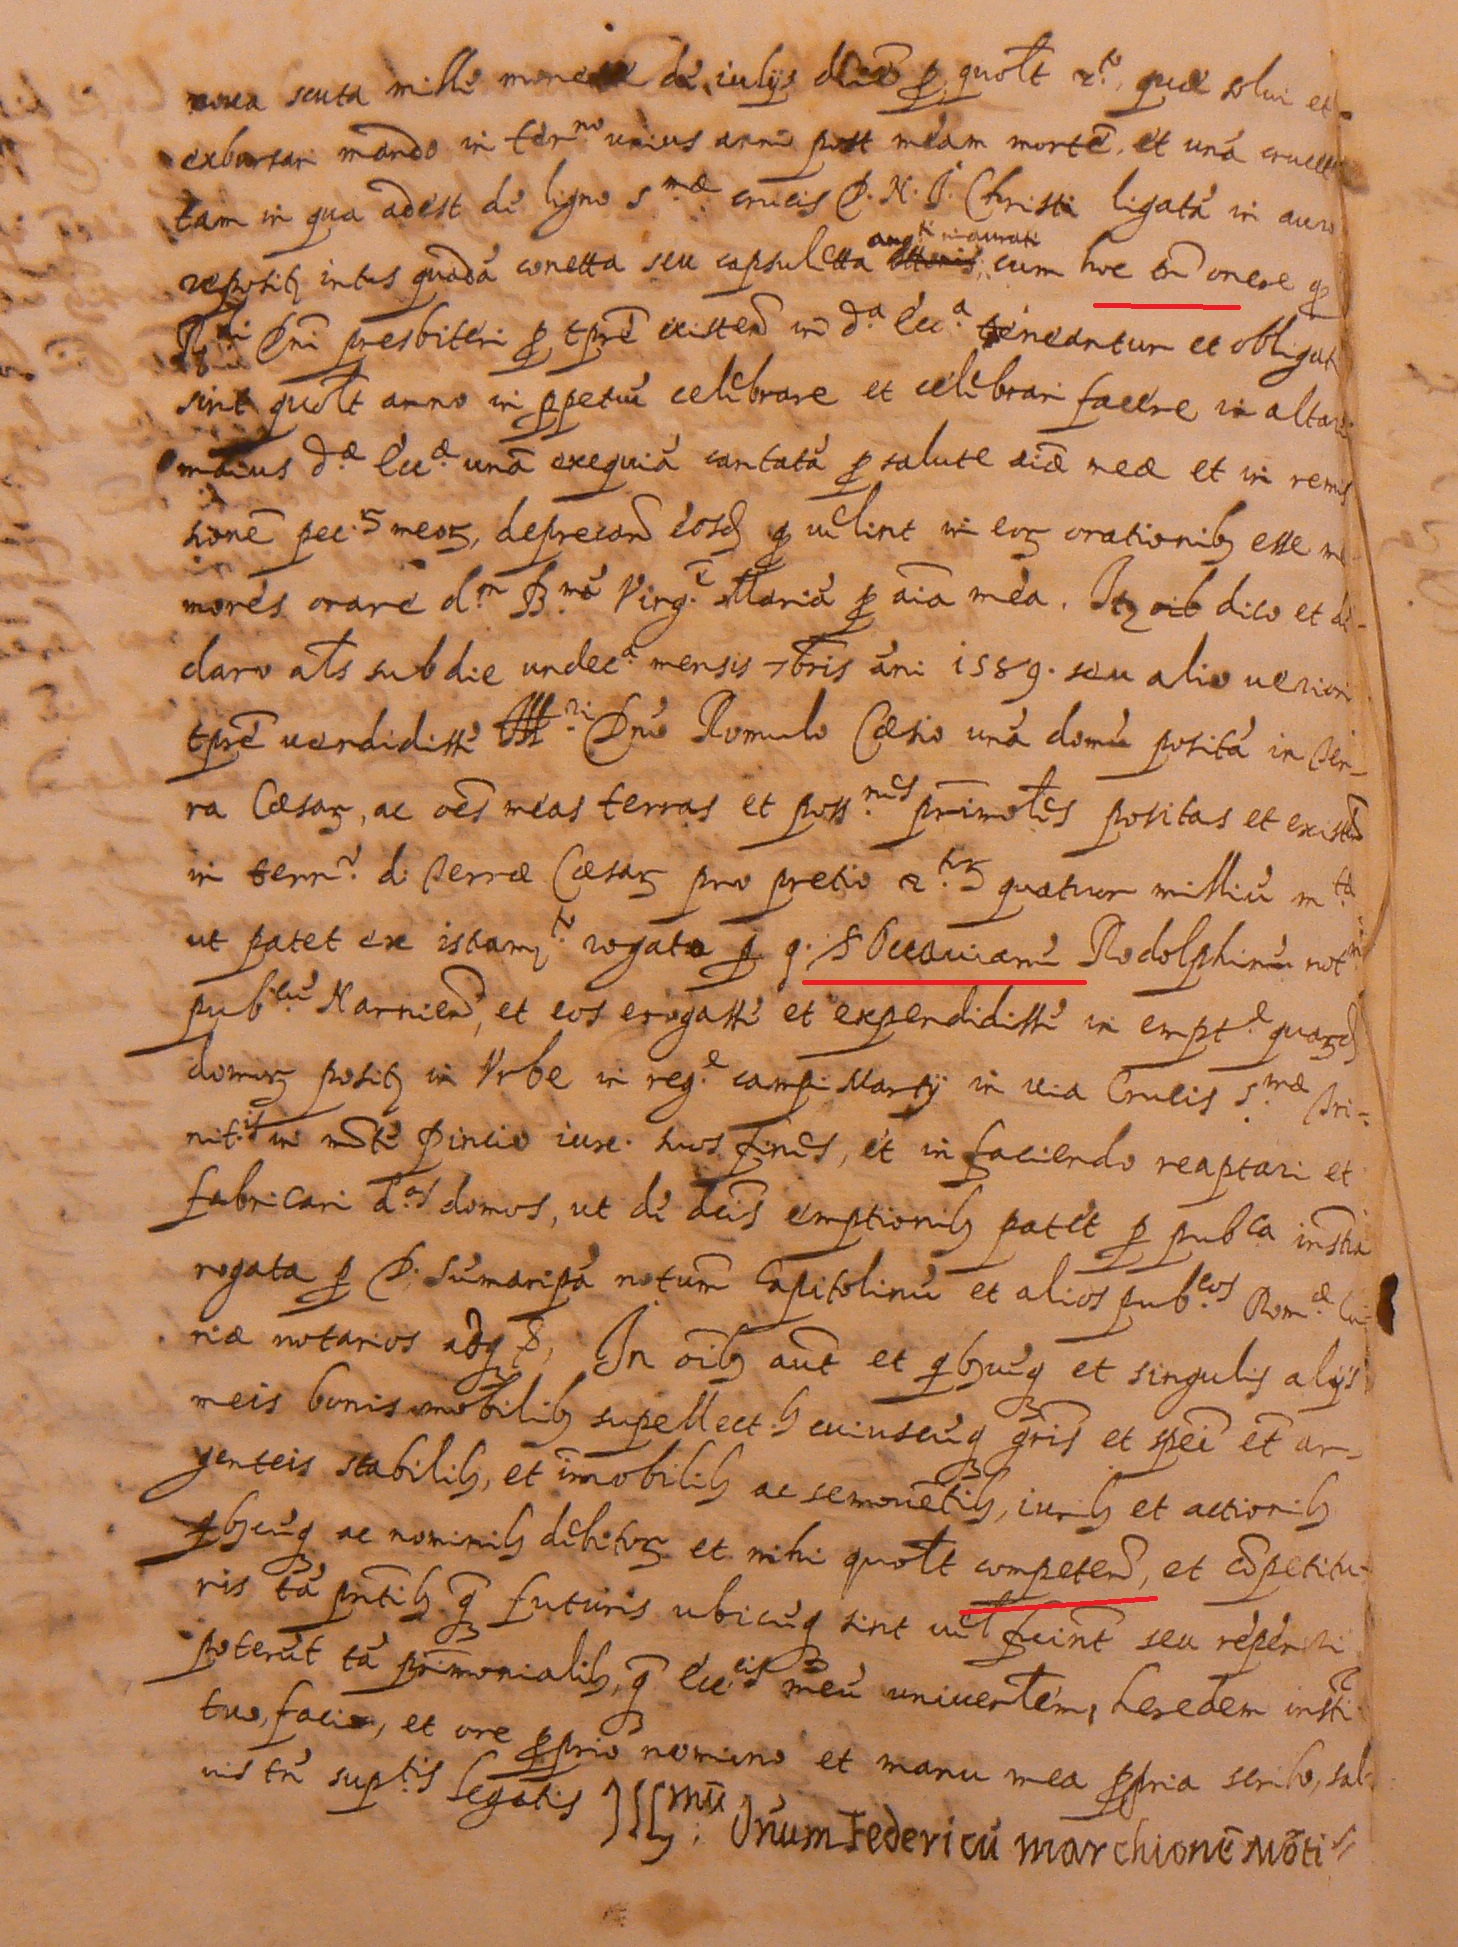 noua scuta mille monetæ de iulijs decẽ ꝑ quolt ꝛ.to, quæ solui et
exbursari mando in terno unius anni post meam mortẽ, et unã crucet
tam in qua adest de ligno S.mæ crucis D. N. J. Christi ligatã in auro
reposit intus quãdã conetta seu capsuletta argti inaurati cum hoc tñ onere ꝙ
R.di Dñi presbiteri ꝑ tpre existeñ in d.a Ecc.a teneantur et obligati
sint quolt anno in ꝑpetuũ celebrare et celebrari facere in altari
maius d.æ Ecc.æ unã exequiã cantatã ꝑ salute aiæ meæ et in remis
sionẽ pec. meoꝝ, deprecañ eosd ꝙ uelint in eoꝝ orationib esse me
mores orare d.m B.mã Virg.ẽ Mariã ꝑ aĩa mea. Itẽ dico et de-
claro als sub die undec.a mensis 7bris ãni 1589. seu alio ueriori
tpre uendidisse Ill.ri Dño Romulo Cæsio unã domũ positã in Ter-
ra Cæsaꝝ, ac oẽs meas terras et poss.nes prĩmoles positas et existeñ
in terr.o d. Terræ Cæsaꝝ pro pretio ꝛ.toꝝ quatuor milliũ m.ta
ut patet ex istam.to rogato ꝑ q. S Octauianũ Rodolphinũ not.m
pub.cũ Narnieñ, et eos erogasse et expendidisse in empt.e quaꝝd
domoꝝ posit in Vrbe in reg.e campi Martij in uia Crucis S.mæ Tri-
nit.is in mõte Pincio iux. suos fines, et in faciendo reaptari et
fabricari d.as domos, ut de dcis emptionib patet ꝑ pubca instra
rogata ꝑ D. Sumaripã notum Capitolinũ et alios pub.cos Rom.æ Cu-
riæ notarios adq, In oĩb aũt et qbuscũq et singulis alijs
meis bonis mobilib supellect.b cuiuscũq gñris et spei et ar-
genteis stabilib, et ĩmobilib ac semouẽtib, iurib et actionib
qbuscũq ac nominib debitoꝝ et mihi quolt competeñ, et cõpetitu-
ris tã pñtib q̃ futuris ubicũq sint uel fuerint seu reperiri
poterũt tã prĩmonialib, q̃ Ecc.cis meũ uniuersalem heredem insti
tuo, facio, et ore ꝓprio nomino et manu mea ꝓpria scribo, sal
uis tñ suptis legatis Ill.mũ Dñum Federicũ Marchionẽ Mõti